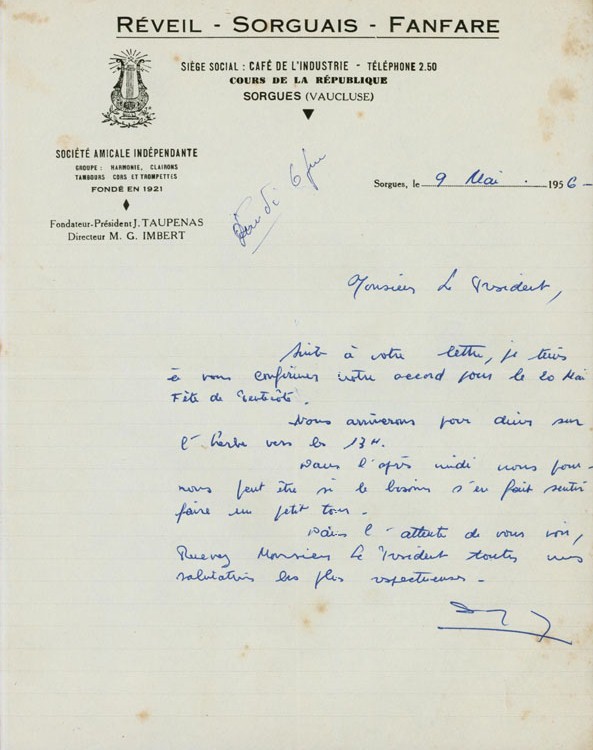 RÉVEIL - SORGUAIS - FANFARE
SIÈGE SOCIAL : CAFÉ DE L'INDUSTRIE - TÉLÉPHONE 2.50
COURS DE LA RÉPUBLIQUE
SORGUES (VAUCLUSE)
SOCIÉTÉ AMICALE INDÉPENDANTE
GROUPE : HARMONIE, CLAIRONS
TAMBOURS CORS ET TROMPETTES
FONDÉ EN 1921
Fondateur-Président J. TAUPENAS
Directeur M. G. IMBERT
6
Sorgues, le 9 Mai . 1956 -
Monsieur Le President,
Suite à votre lettre, je tiens
à vous confirmer notre accord pour le 20 Mai
Fête de Pentecôte.
Nous arriverons pour diner sur
l'herbe vers les 13 H.
Dans l'après midi nous pour-
rons peut être si le besoin s'en fait sentir
faire un petit tour.
Dans l'attente de vous voir,
Recevez Monsieur Le President toutes nos
salutations les plus respectueuses -